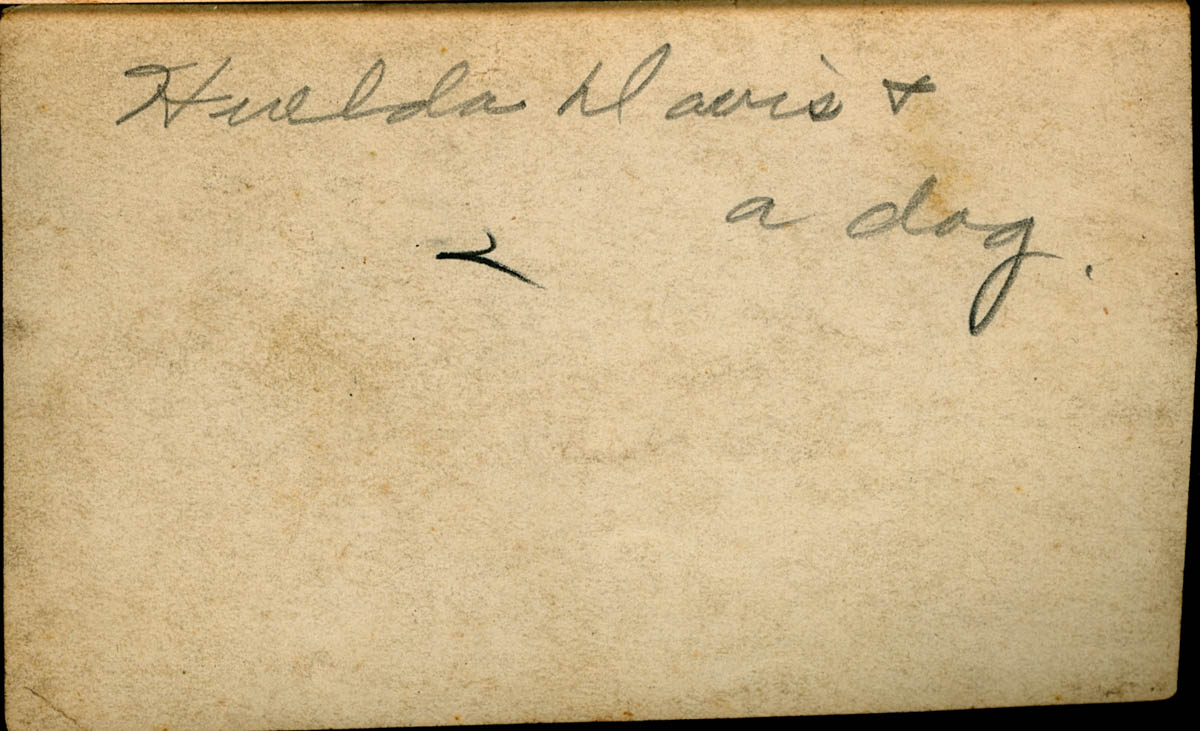 Huelda Davis +
a dog.